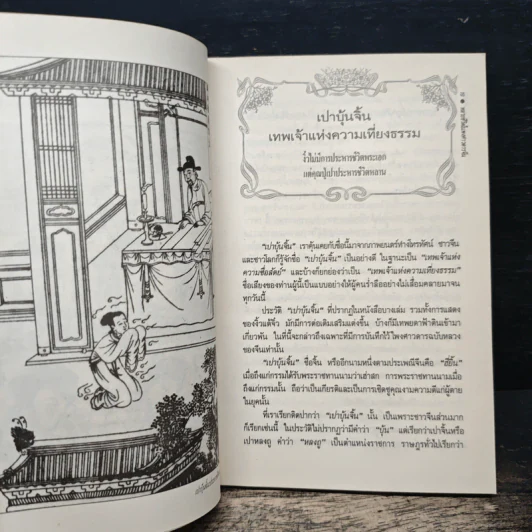 เปาบุ้นจิ้น
เทพเจ้าแห่งความเที่ยงธรรม
งิ้วไม่มีการประหารชีวิตพระเอก
แต่คุณปู่เปาประหารชีวิตหลาน
"เปาบุ้นจิ้น" เราคุ้นเคยกับชื่อนี้มาจากภาพยนตร์ทางโทรทัศน์ ชาวจีน
และชาวโลกก็รู้จักชื่อ "เปาบุ้นจิ้น" เป็นอย่างดี ในฐานะเป็น "เทพเจ้าแห่ง
ความซื่อสัตย์" และบ้างก็ยกย่องว่าเป็น "เทพเจ้าแห่งความเที่ยงธรรม"
ชื่อเสียงของท่านผู้นี้เป็นแบบอย่างให้ผู้คนรำลึกอย่างไม่เสื่อมคลายมาจน
ทุกวันนี้
ประวัติ "เปาบุ้นจิ้น" ที่ปรากฏในหนังสือบางเล่ม รวมทั้งการแสดง
ของงิ้วแต้จิ๋ว มักมีการต่อเติมเสริมแต่งขึ้น บ้างก็มีเทพยดาฟ้าดินเข้ามา
เกี่ยวพัน ในที่นี้จะกล่าวถึงเฉพาะที่มีการบันทึกไว้ในพงศาวดารฉบับหลวง
ของจีนเท่านั้น
"เปาบุ้นจิ้น" ชื่อจิ้น หรืออีกนามหนึ่งตามประเพณีจีนคือ
เมื่อถึงแก่กรรมได้รับพระราชทานนามว่าเฮ่าสก การพระราชทานนามเมื่อ
ถึงแก่กรรมนั้น ถือว่าเป็นเกียรติและเป็นการเชิดชูคุณงามความดีแก่ผู้ตาย
ในยุคนั้น
ที่เราเรียกติดปากว่า "เปาบุ้นจิ้น" นั้น เป็นเพราะชาวจีนส่วนมาก
ก็เรียกเช่นนี้ ในประวัติไม่ปรากฏว่ามีคำว่า "บุ้น" แต่เรียกว่าเปาจิ้นหรือ
เปาหลงถู คำว่า "หลงถู" เป็นตำแหน่งราชการ ราษฎรทั่วไปเรียกว่า